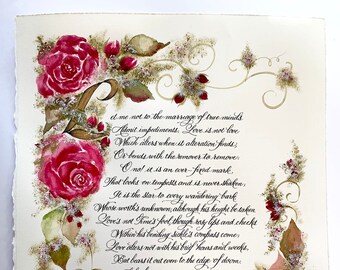 Let me not to the marriage of true minds
Admit impediments. Love is not love
Which alters when it alteration finds;
Or bends with the remover to remove:
O no! it is an ever-fixed mark,
That looks on tempests and is never shaken;
It is the star to every wandering bark
Whose worth's unknown, although his height be taken.
Love's not Time's fool, though rosy lips and cheeks
Within his bending sickle's compass come;
Love alters not with his brief hours and weeks,
But bears it out even to the edge of doom.